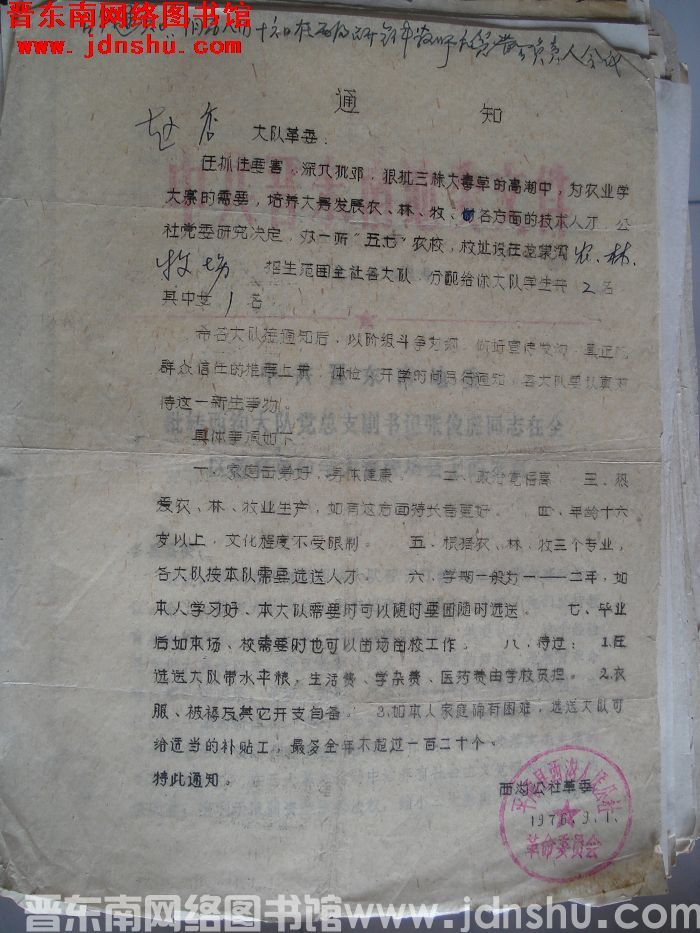 晋东南网络图书馆
www.jdnshu.com
通 知
赵店 大队革委:
在抓住要害,深入批邓,狠批三株大毒草的高潮中,为农业学
大寨的需要,培养大量发展农、林、牧、副各方面的技术人才,公
社党委研究决定,办一所“五七”农校,校址设在龙泉沟农、林、
牧场 招生范围全社各大队,分配给你大队学生共2名
其中女1名
希各大队接通知后,以阶级斗争为纲,做好宣传发动,真正把
群众信任的推荐上来,体检、开学的时间待通知,各大队要认真对
待这一新生事物。
具体事项如下
一、家庭出身好,身体健康。 二、政治觉悟高 三、热
爱农、林、牧业生产,如有这方面特长者更好。 四、年龄十六
岁以上,文化程度不受限制。 五、根据农、林、牧三个专业,
各大队按本队需要选送人才。 六、学期一般为一——二年,如
本人学习好、本大队需要时可以随时要回随时选送。 七、毕业
后如本场、校需要时也可以留场留校工作。 八、待遇:1.由
选送大队带水平粮,生活费、学杂费、医药费由学校负担。 2.衣
服、被褥及其它开支自备。 3.如本人家庭确有困难,选送大队可
给适当的补贴工,最多全年不超过一百二十个。
特此通知。
西沟公社革委
1976.9.1.
平顺县西沟人民公社
革命委员会
晋东南网络图书馆 www.jdnshu.com